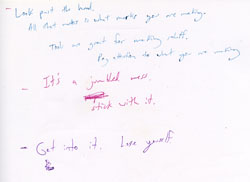 - Look past the hand.
All that matters is what marks you are making.
Tools are great for making stuff.
Pay attention to what you are making
- It's a jumbled mess.
stick with it.
- Get into it. Lose yourself